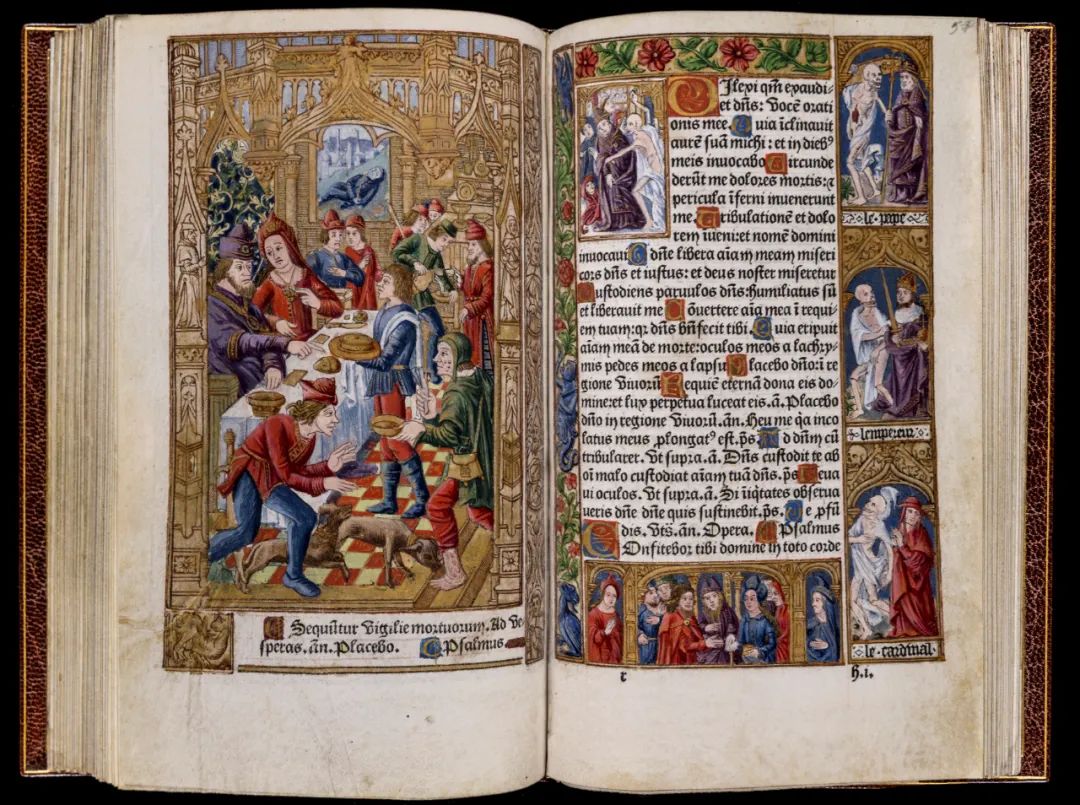 Sequũtur Vigilie mortuorum. Ad Ve-
speras. añ. Placebo. Psalmus
57
Dilexi qm̃ exaudi-
et dñs: Vocẽ orati
onis mee. Quia ĩclinauit
aurẽ suã michi: et in dieb⁹
meis inuocabo Circunde
derũt me dolores mortis: ⁊
pericula ĩferni inuenerunt
me. Tribulationẽ et dolo
rem iueni: et nomẽ domini
inuocaui O dñe libera aĩam meam miseri
cors dñs et iustus: et deus noster miseretur
Custodiens paruulos dñs: humiliatus sũ
et liberauit me Conuertere aĩa mea ĩ requi-
em tuam: qr dñs bñfecit tibi. Quia eripuit
aĩam meã de morte: oculos meos a lachry-
mis pedes meos a lapsu Placebo dño: ĩ re
gione Viuorũ Requiẽ eternã dona eis do-
mine: et lux perpetua luceat eis. ã. Placebo
dño in regione Viuorũ. añ. Heu me qa inco
latus meus ꝓlongat⁹ est. ps. Ad dñm cũ
tribularer. Vt supra. ã. Dñs custodit te ab
oĩ malo custodiat aĩam tuã dñs. ps Leua
ui oculos. Vt supra. ã. Si ĩiqtates obserua
ueris dñe dñe quis sustinebit. ps. De ꝓfũ
dis. Vts̃. añ. Opera. Psalmus
Confitebor tibi domine in toto corde
le pape
lempereur
le cardinal
r
h.i.